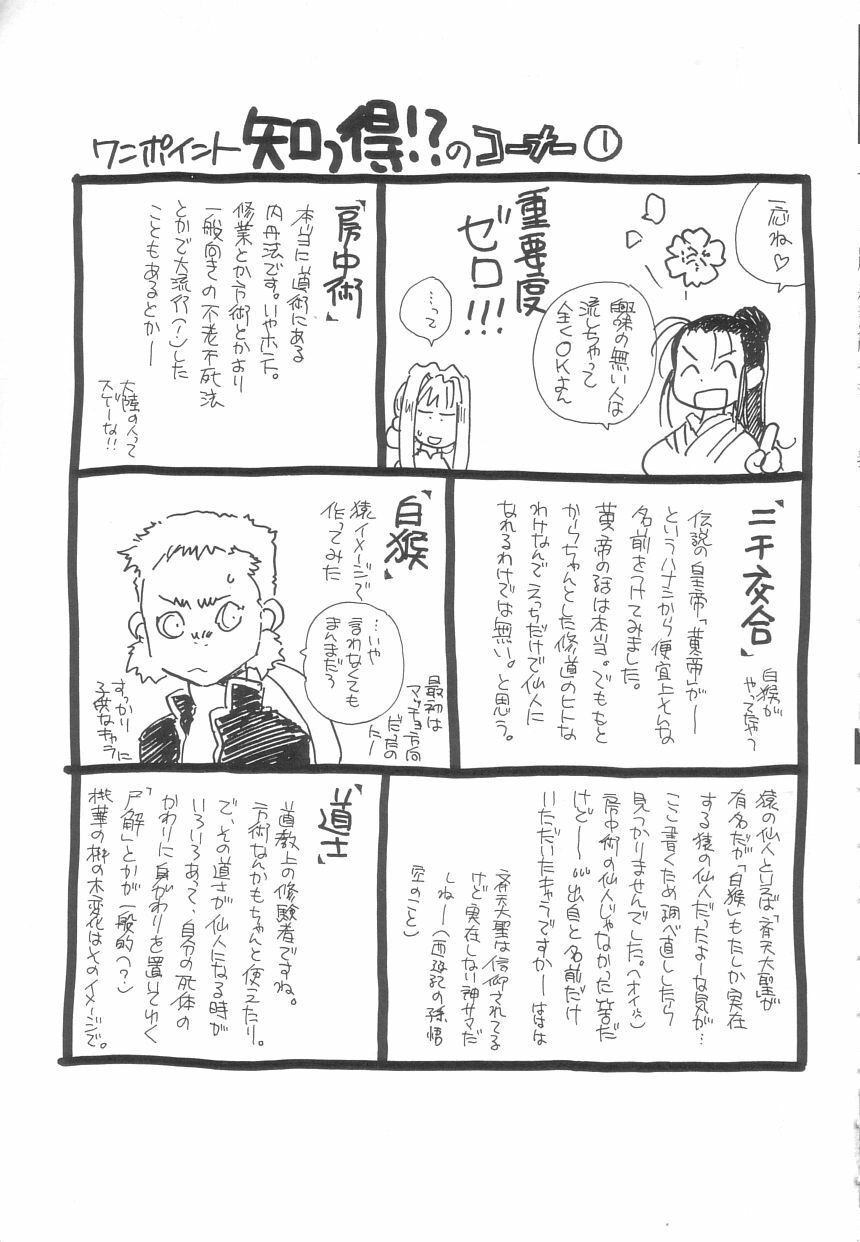 ワンポイント 知っ得!?のコーナー①
一応ね♡
重要度
ゼロ!!!
興味の無い人は
流しちゃって
全くOKよん
…って
「房中術」
本当に道術にある
内丹法です。いやホント。
修業とか方術とかより
一般向きの不老不死法
とかで大流行(?)した
こともあるとかー
大陸の人って
スゲーな!!
「二千交合」
白猴が
やってたやつ
伝説の皇帝「黄帝」が―
というハナシから便宜上そんな
名前をつけてみました。
黄帝の話は本当。でももと
からちゃんとした修道のヒトな
わけなんでえっちだけで仙人に
なれるわけでは無い。と思う。
「白猴」
猿イメージで
作ってみた
…いや
言わなくても
まんまだろ
最初は
マッチョ方向
だったの
にー
すっかり
子供なキャラに
猿の仙人といえば「斉天大聖」が
有名だが「白猴」もたしか実在
する猿の仙人だったよーな気が…
ここ書くため調べ直ししたら
見つかりませんでした。(オイ)
房中術の仙人じゃなかった筈だ
けどー…出自と名前だけ
いただいたキャラですかーははは
斉天大聖は信仰されてる
けど実在しない神サマだ
しねー(西遊記の孫悟
空のこと)
「道士」
道教上の修験者ですね。
方術なんかもちゃんと使えたり。
で、その道士が仙人になる時が
いろいろあって、自分の死体の
かわりに身がわりを置いてゆく
「尸解」とかが一般的(?)
桃華の桃の木変化はそのイメージで。